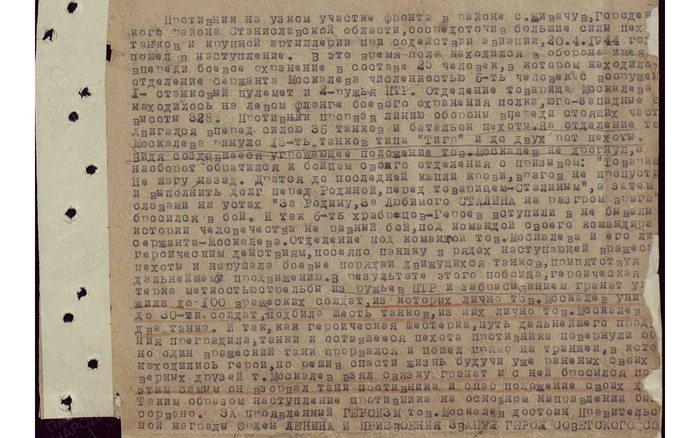 Противник на узком участке фронта в районе с.Живачув,Городен
кого района Станиславской области,сосредоточив большие силы пех
танков и крупной артиллерии при содействии авиации,20.4.1944 год
пошел в наступление. В это время полк находился в обороне имея
впереди боевое охранение в составе 25 человек,в котором находилос
отделение сержанта Москалева численностью 6-ть человек с вооружен
1- станковый пулемет и 2-ружья ПТР. Отделение товарища Москалева
находилось на левом фланге боевого охранения полка,юго-западные с
высоты 328. Противник прорвав линию обороны впереди стоящих част
двигался вперед силою 36 танков и батальон пехоты.На отделение то
Москалева ринуло 15-ть танков типа "Тигр" и до двух рот пехоты.
Видя создавшееся угрожающее положение тов.Москалев не дрогнул,а
наоборот обратился к бойцам своего отделения с призывом: "Товарищ
Не шагу назад. Драться до последней капли крови,врагов не пропусти
и выполнить долг перед Родиной,перед товарищем-Сталиным",а затем
словами на устах "За Родину,за Любимого СТАЛИНА на разгром врага"
бросился в бой. И так 6-ть храбрецов-Героев вступили в не бывалый
истории человечества не равный бой,под командой своего командира
сержанта-Москалева.Отделение под командой тов.Москалева и его ли
героическим действиям,посеяло панику в рядах наступающей вражеск
пехоты и нарушала боевые порядки движущихся танков,припятствуя
дальнейшему продвижению.В результате этого побоища,героическая
терка меткостьюстрельбы из ружьев ПТР и забрасыванием гранат уни
жила до 100 вражеских солдат,из которых лично тов.Москалев уни
до 30-ти солдат,подбила шесть танков,из них лично тов.Москалев
два танка. И так,как героическая шестерка,путь дальнейшего прод
ния преградила,танки и оставшееся пехота противника повернули об
но один вражеский танк прорвался и пошел прямо на траншеи,в кото
находились герои,но решив спасти жизнь будучи уже раненых своих
верных друзей т.Москалев взял связку гранат и с ней бросился по
этим самым он взорвал танк противника и спас положение своих д
Таким образом наступление противника на основном направлении бы
сорвано. ЗА проявленный ГЕРОИЗМ тов.Москалев достоин Правительс
ной награды орден ЛЕНИНА И ПРИСВОЕНИЯ ЗВАНИЯ ГЕРОЯ СОВЕТСКОГО СО